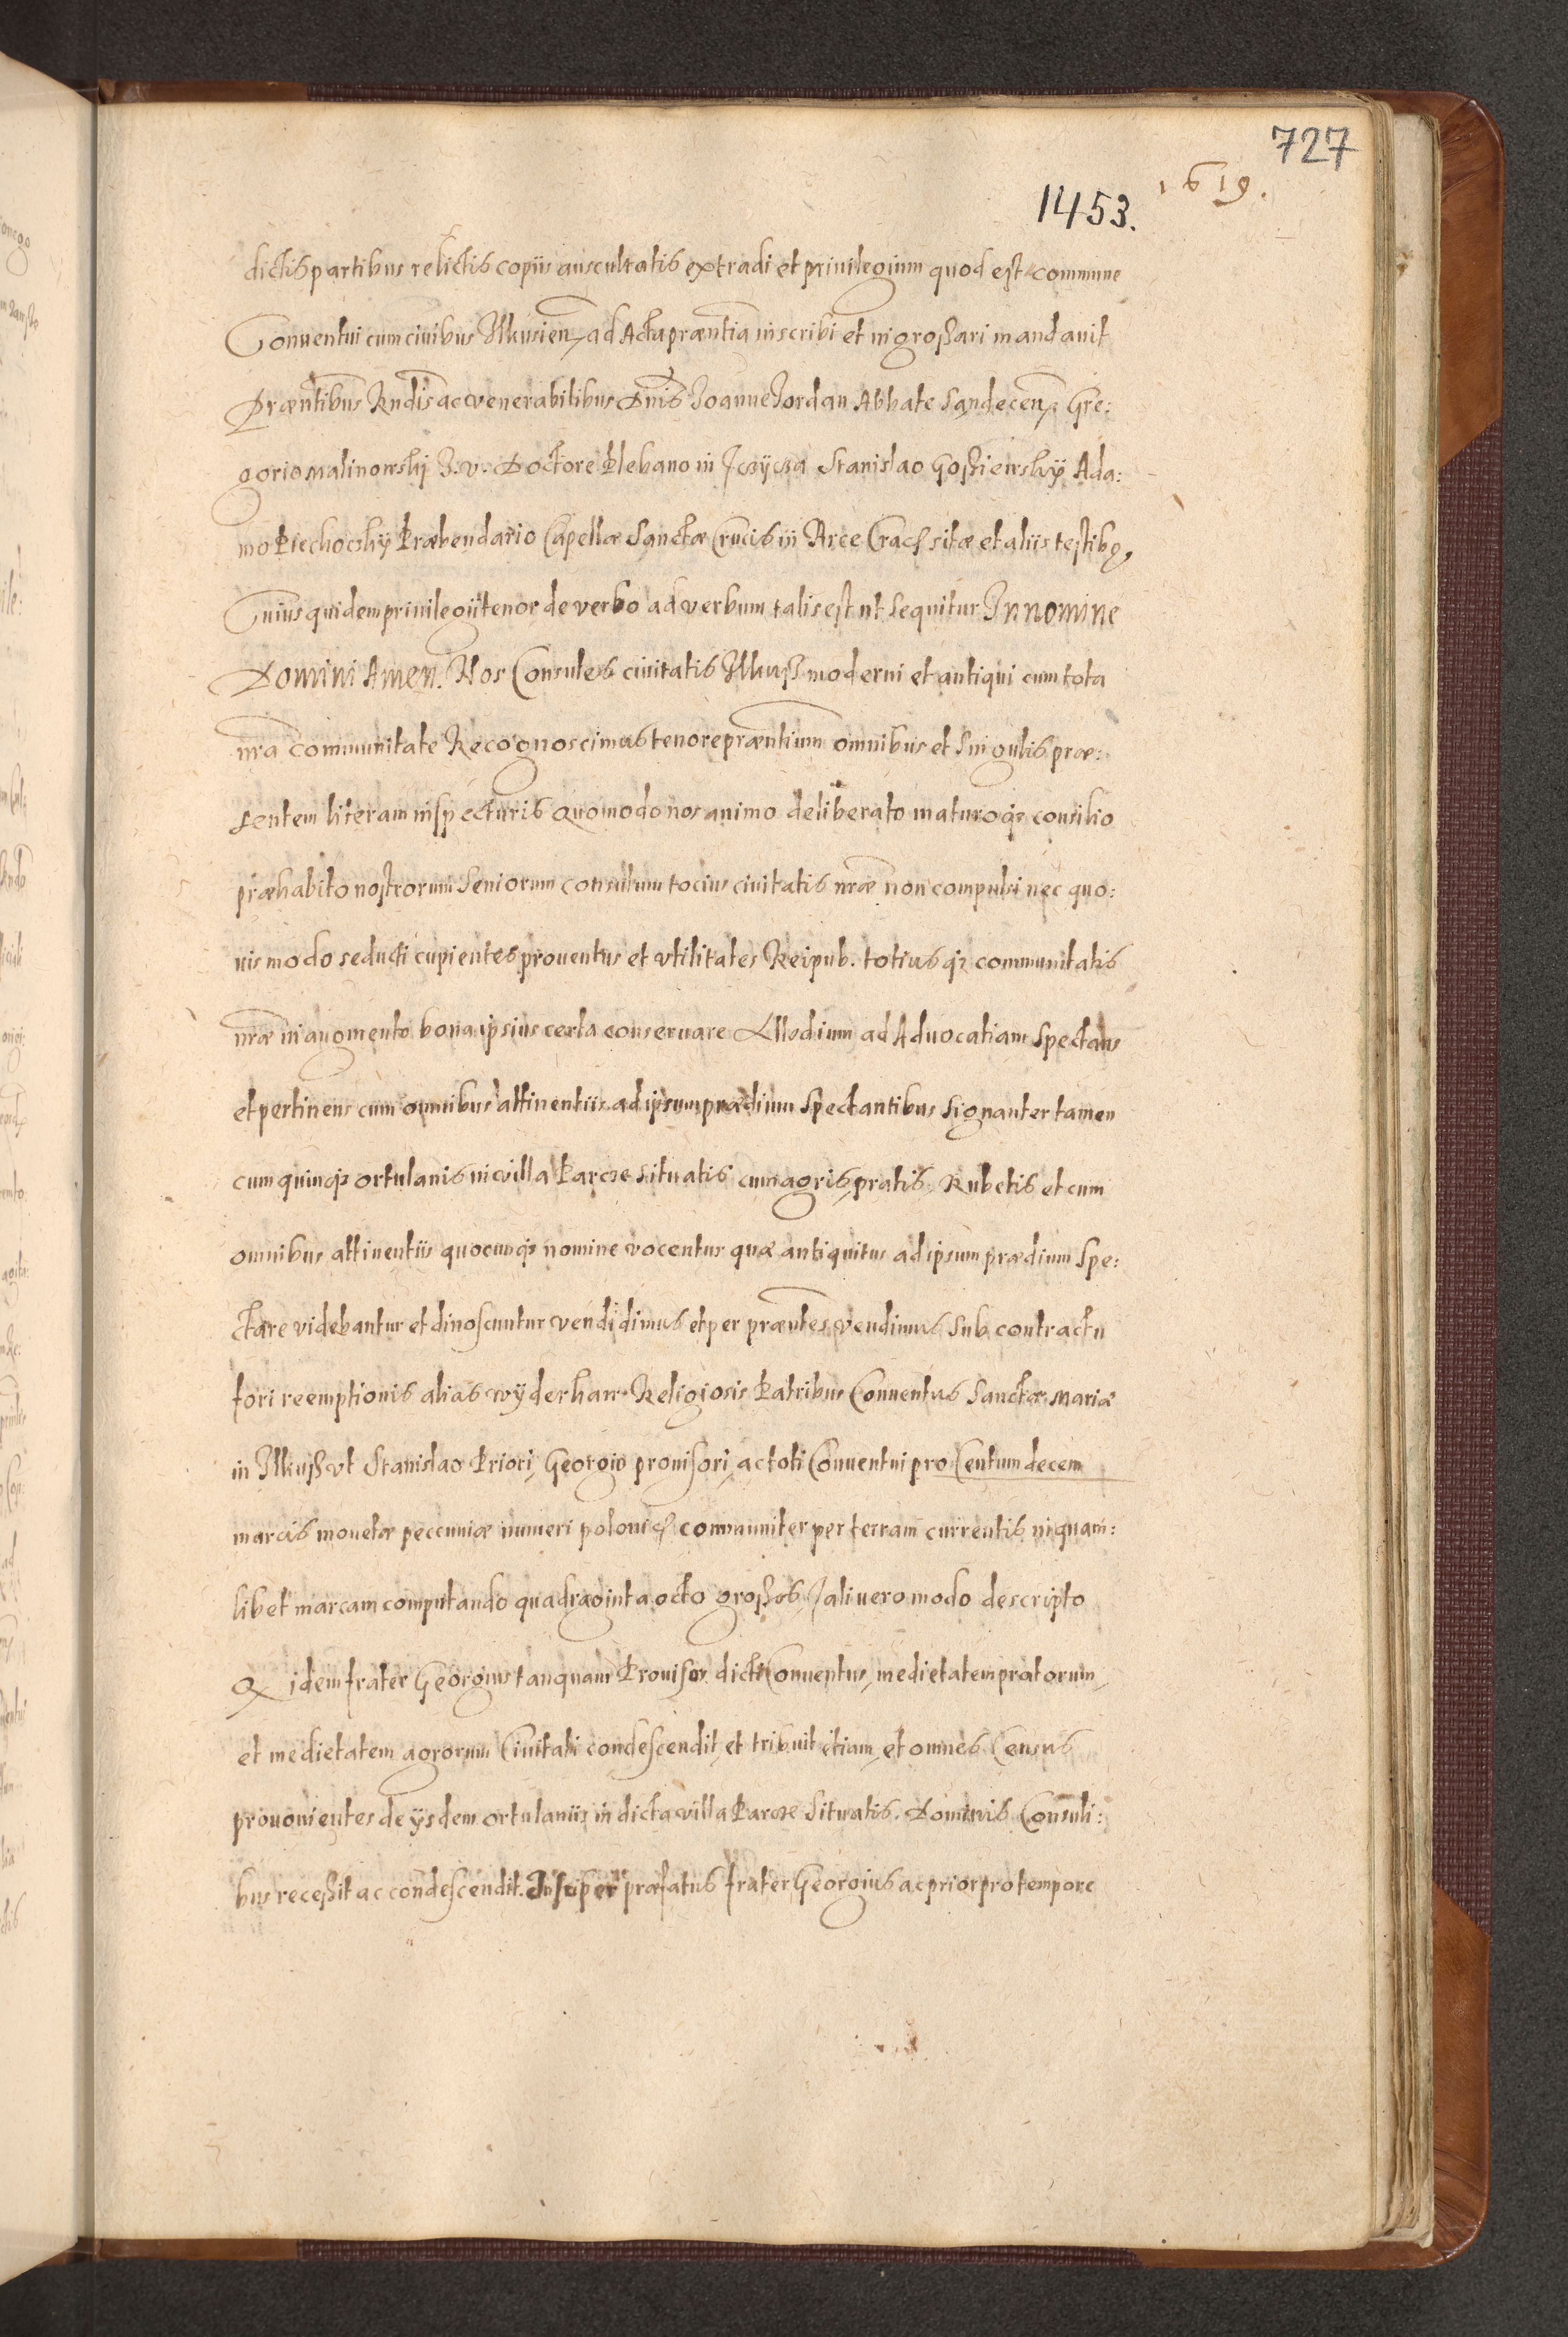 727
1619.
1453.
dictis partibus relictis copiis auscultatis extradi et priuilegium quod est commune
Conuentui cum ciuibus Ilkusien, ad Acta præntia inscribi et ingroßari mandauit
Præntibus Rndis ac venerabilibus Dnis Joanne Jordan Abbate Sandecen, Gre:
gorio Malinowskj J. V. Doctore Plebano in Stanislao Goßiewskÿ Ada:
mo Piechockÿ Præbendario Capellæ Sanctæ Crucis in Arce Crac sitæ et aliis testibq,
Cuius quidem priuilegii tenor de verbo ad verbum talis est ut sequitur In nomine
Domini Amen. Nos Consules ciuitatis Ilkuß moderni et antiqui cum tota
nra communitate Recognoscimus tenore præntium omnibus et singulis præ:
sentem literam inspecturis Quomodo nos animo deliberato maturoqꝫ consilio
præhabito nostrorum Seniorum consulum tocius ciuitatis nræ non compulsi nec quo:
uis modo seducti cupientes prouentus et vtilitates Reipub. totiusqꝫ communitatis
nræ in augmento bona ipsius certa conseruare Allodium ad Aduocatiam spectans
et pertinens cum omnibus attinentiis ad ipsum prædium spectantibus signanter tamen
cum quinqꝫ ortulanis in villa Parcze situatis cum agris, pratis, Rubetis et cum
omnibus attinentiis quocunqꝫ nomine vocentur quæ antiquitus ad ipsum prædium spe:
ctare videbantur et dinoscuntur vendidimus et per præntes vendimus sub contractu
fori reemptionis alias wÿderkaw. Religiosis Patribus Conuentus Sanctæ Mariæ
in Ilkuß vt Stanislao Priori, Georgio prouisori, ac toti Conuentui pro Centum decem
marcis monetæ peccuniæ numeri polonic communiter per terram currentis in quam:
libet marcam computando quadraginta octo großos, Tali vero modo descripto
Q idem frater Georgius tanquam Prouisor dicti Conuentus, medietatem pratorum,
et medietatem agrorum Ciuitati condescendit, et tribuit etiam, et omnes Census
prouonientes de ÿsdem ortulaniis in dicta villa Parcze situatis. Dominis Consuli:
bus receßit ac condescendit. Insuper præfatus frater Georgius ac prior pro tempore